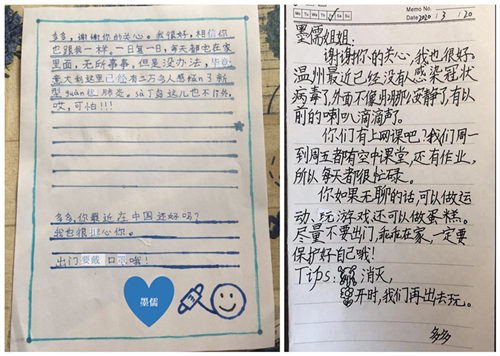 多多,谢谢你的关心。我很好,相信你
也跟我一样。一日复一日,每天都宅在家
里面,无所事事,但是没办法,毕竟
意大利这里已经有三万多人感染了新
型guàn状肺炎。sǎ丁岛这儿也不例外。
哎,可怕!!!
多多,你最近在中国还好吗?
我也很担心你。
出门要戴口罩哦!
墨儒
Memo No.
Mo Tu We Th Fr Sa Su
Date 2020 / 3 / 20
墨儒姐姐:
谢谢你的关心,我也很好。
温州最近已经没有人感染冠状
病毒了,外面不像别那么安静了,有以
前的喇叭滴滴声。
你们有上网课吧?我们周一
到周五都有空中课堂,还有作业,
所以每天都很忙碌。
你如果无聊的话,可以做运
动、玩游戏还可以做蛋糕。
尽量不要出门,乖乖在家,一定要
保护好自己哦!
Tips: 消灭,
开时,我们再出去玩。
多多